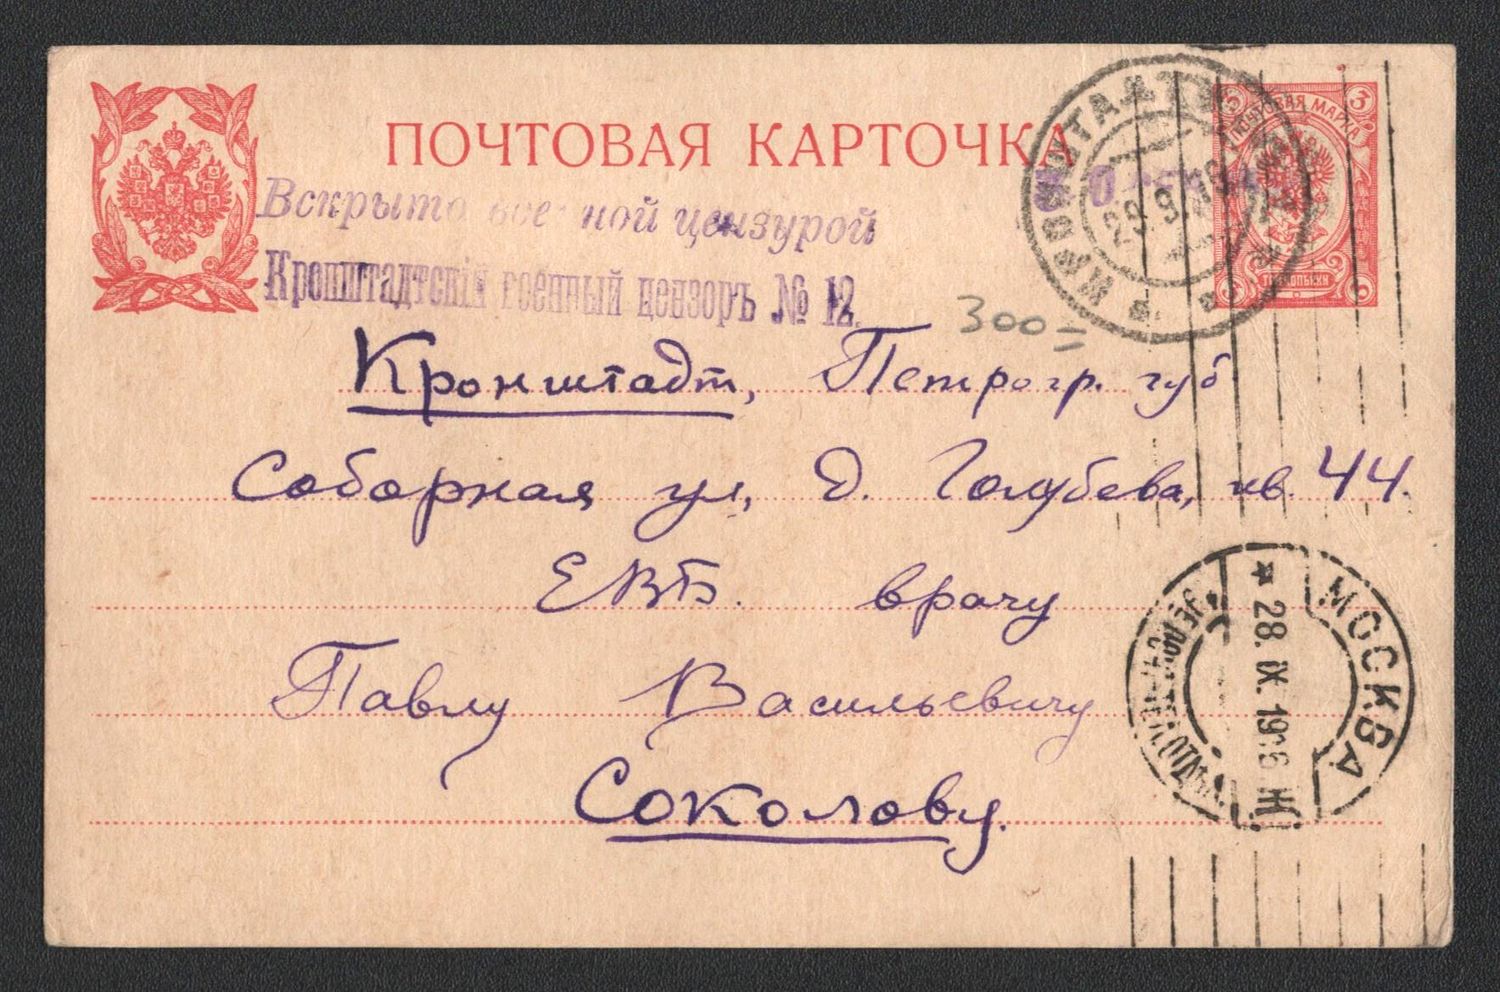 ПОЧТОВАЯ КАРТОЧКА
3 ПОЧТОВАЯ МАРКА 3
КРОНШТАДТЪ
29.9.16
Вскрыто военной цензурой
Кронштадтскій военный цензоръ № 12.
300=
Кронштадт, Петрогр. губ
Соборная ул, д. Голубева, кв. 44.
ЕВБ. врачу
Павлу Васильевичу
Соколову.
МОСКВА
* 28. IX. 1916 Ж